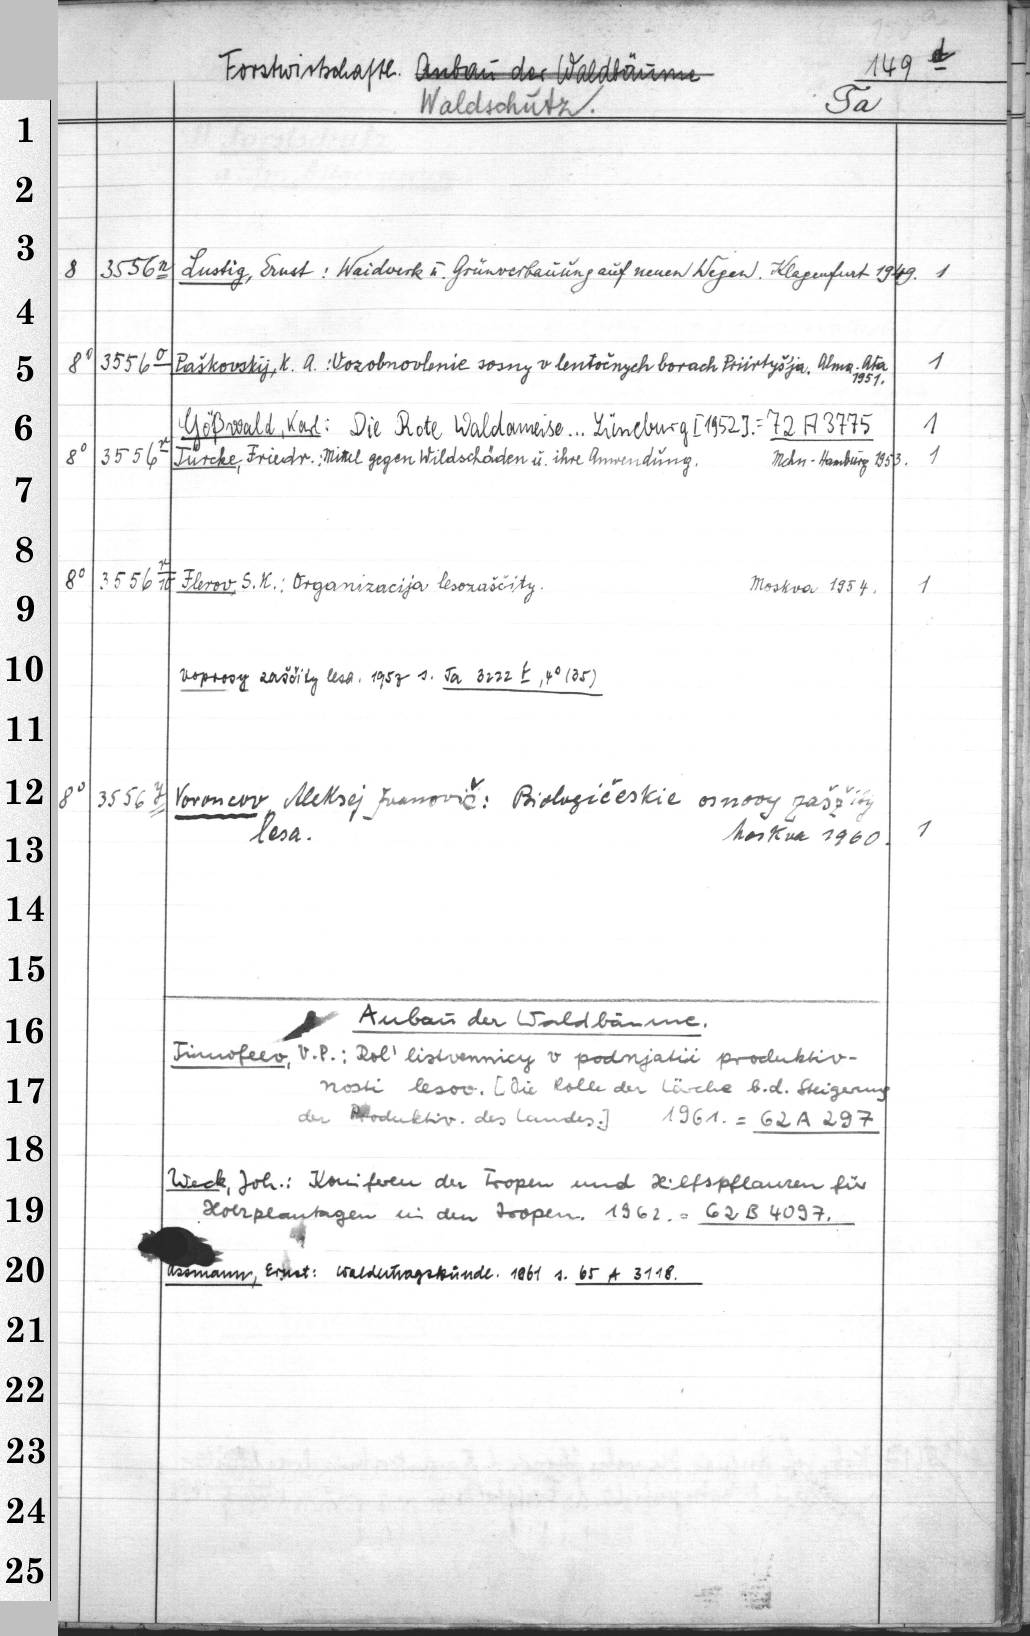 Forstwirtschaftl. Anbau der Waldbäume 149 d
Waldschutz. Ta
1
2
3
8 3556 n Lustig, Ernst: Waidwerk u. Grünverbauung auf neuen Wegen. Klagenfurt 1949. 1
4
5 8° 3556 o Paškovskij, K. A.: Vozobnovlenie sosny v lentočnych borach Priirtyšja. Alma-Ata 1
1951.
6 Gößwald, Karl: Die Rote Waldameise... Lüneburg [1952]. = 72 A 3775 1
8° 3556 r Türcke, Friedr.: Mittel gegen Wildschäden u. ihre Anwendung. Mchn-Hamburg 1953. 1
7
8
8° 3556 r/10 Flerov, S. K.: Organizacija lesozaščity. Moskva 1954. 1
9
10 Voprosy zaščity lesa. 1957 s. Ta 3222 t, 4° (35)
11
12 8° 3556 y Voroncov Aleksej Ivanovič: Biologičeskie osnovy zaščity
13 lesa. Moskva 1960. 1
14
15
16 Anbau der Waldbäume.
Timofeev, V.P.: Rol' listvennicy v podnjatii produktiv-
17 nosti lesov. [Die Rolle der Lärche b.d. Steigerung
der Produktiv. des Landes.] 1961. = 62 A 297
18
Weck, Joh.: Koniferen der Tropen und Hilfspflanzen für
19 Holzplantagen in den Tropen. 1962. = 62 B 4097.
20 Assmann, Ernst: Waldertragskunde. 1961 s. 65 A 3118.
21
22
23
24
25